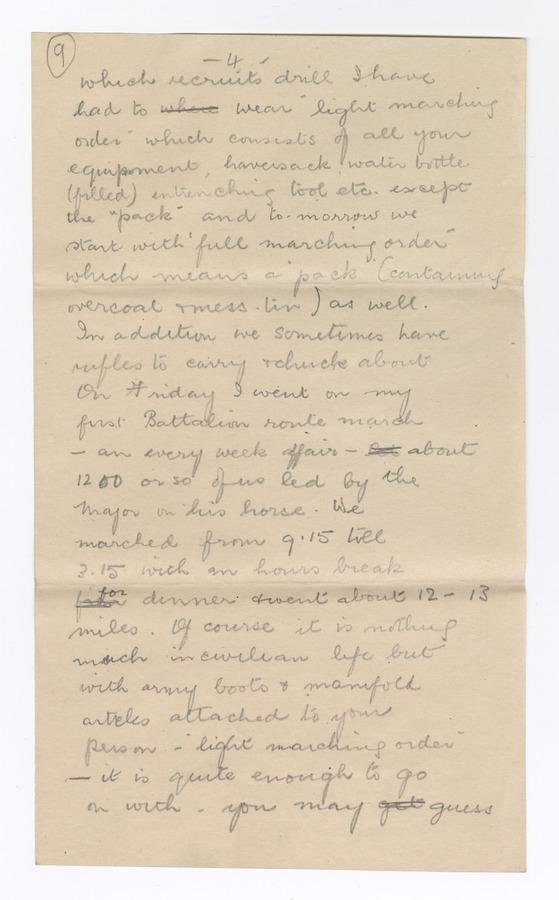 9
- 4 -
which recruits drill I have
had to where wear "light marching
order" which consists of all your
equipment, haversack, water bottle
(filled) entrenching tool etc. except
the "pack" and to-morrow we
start with "full marching order"
which means a "pack" (containing
overcoat & mess-tin) as well.
In addition we sometimes have
rifles to carry & chuck about
On Friday I went on my
first Battalion route march
- an every week affair - about
1200 or so of us led by the
Major on his horse. We
marched from 9.15 till
3.15 with an hours break
for dinner & went about 12 - 13
miles. Of course it is nothing
much in civilian life but
with army boots & manifold
articles attached to your
person - "light marching order"
- it is quite enough to go
on with - you may get guess